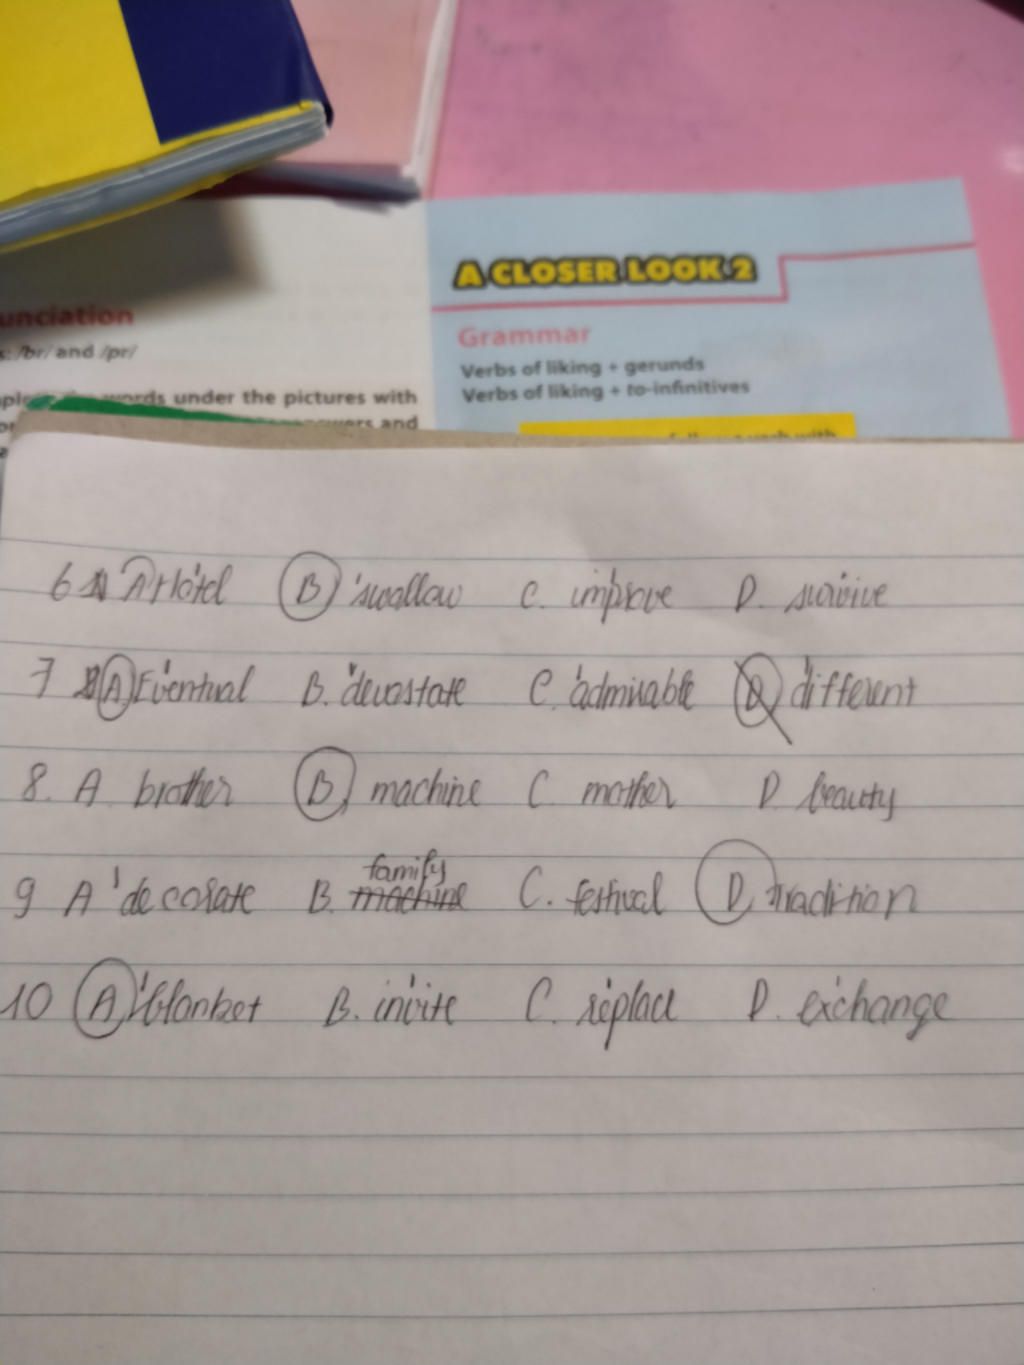 A CLOSER LOOK 2
unciation
Grammar
s: /br/ and /pr/
Verbs of liking + gerunds
Verbs of liking + to-infinitives
words under the pictures with
answers and
6 A Hotel B swallow C. improve D. survive
7 A Eventual B. devastate C. admirable D different
8. A brother B machine C. mother D. beauty
9 A 'decorate B. family machine C. festival D. tradition
10 A 'blanket B. invite C. replace D. exchange